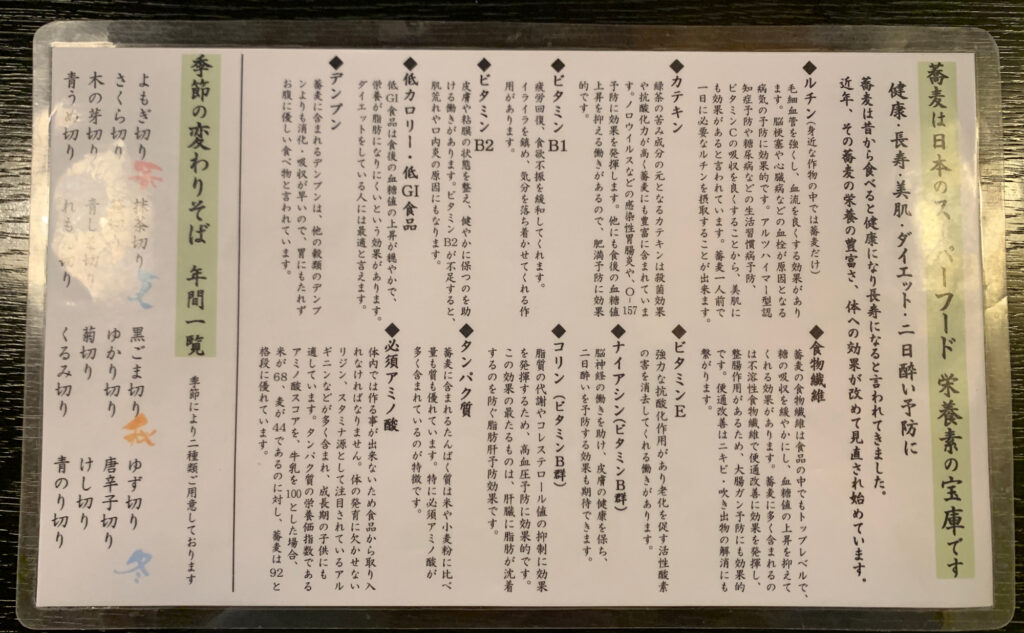 蕎麦は日本のスーパーフード 栄養素の宝庫です
健康・長寿・美肌・ダイエット・二日酔い予防に
蕎麦は昔から食べると健康になり長寿になると言われてきました。
近年、その蕎麦の栄養の豊富さ、体への効果が改めて見直され始めています。
◆ルチン(身近な作物の中では蕎麦だけ)
毛細血管を強くし、血流を良くする効果があり
ます。脳梗塞や心臓病などの血栓が原因となる
病気の予防に効果的です。アルツハイマー型認
知症予防や糖尿病などの生活習慣病予防、
ビタミンCの吸収を良くすることから、美肌に
も効果があると言われています。蕎麦一人前で
一日に必要なルチンを摂取することが出来ます。
◆カテキン
緑茶の苦み成分の元となるカテキンは殺菌効果
や抗酸化力が高く蕎麦にも豊富に含まれていま
す。ノロウイルスなどの感染性胃腸炎や、O-157
予防に効果を発揮します。他にも食後の血糖値
上昇を抑える働きがあるので、肥満予防に効果
的です。
◆ビタミンB1
疲労回復、食欲不振を緩和してくれます。
イライラを鎮め、気分を落ち着かせてくれる作
用があります。
◆ビタミンB2
皮膚や粘膜の状態を整え、健やかに保つのを助
ける働きがあります。ビタミンB2が不足すると、
肌荒れや口内炎の原因にもなります。
◆低カロリー・低GI食品
低GI食品は食後の血糖値の上昇が穏やかで、
栄養が脂肪になりにくいという効果があります。
ダイエットをしている人には最適と言えます。
◆デンプン
蕎麦に含まれるデンプンは、他の穀類のデンプ
ンよりも消化・吸収が早いので、胃にもたれず
お腹に優しい食べ物と言われています。
◆食物繊維
蕎麦の食物繊維は食品の中でもトップレベルで、
糖の吸収を緩やかにし、血糖値の上昇を抑えて
くれる効果があります。蕎麦に多く含まれるの
は不溶性食物繊維で便通改善に効果を発揮し、
整腸作用があるため、大腸ガン予防にも効果的
です。便通改善はニキビ・吹き出物の解消にも
繋がります。
◆ビタミンE
強力な抗酸化作用があり老化を促す活性酸素
の害を消去してくれる働きがあります。
◆ナイアシン(ビタミンB群)
脳神経の働きを助け、皮膚の健康を保ち、
二日酔いを予防する効果も期待できます。
◆コリン(ビタミンB群)
脂質の代謝やコレステロール値の抑制に効果
を発揮するため、高血圧予防に効果的です。
この効果の最たるものは、肝臓に脂肪が沈着
するのを防ぐ脂肪肝予防効果です。
◆タンパク質
蕎麦に含まれるたんぱく質は米や小麦粉に比べ
量も質も優れています。特に必須アミノ酸が
多く含まれているのが特徴です。
◆必須アミノ酸
体内では作る事が出来ないため食品から取り入
れなければなりません。体の発育に欠かせない
リジン、スタミナ源として注目されているアル
ギニンなどが多く含まれ、成長期の子供にも
適しています。タンパク質の栄養価指数である
アミノ酸スコアを、牛乳を100とした場合、
米が68、麦が44であるのに対し、蕎麦は92と
格段に優れています。
季節の変わりそば 年間一覧
季節により二種類ご用意しております
よもぎ切り
さくら切り
木の芽切り
青うめ切り
春
抹茶切り
夏
黒ごま切り
ゆかり切り
菊切り
くるみ切り
秋
ゆず切り
唐辛子切り
けし切り
青のり切り
冬